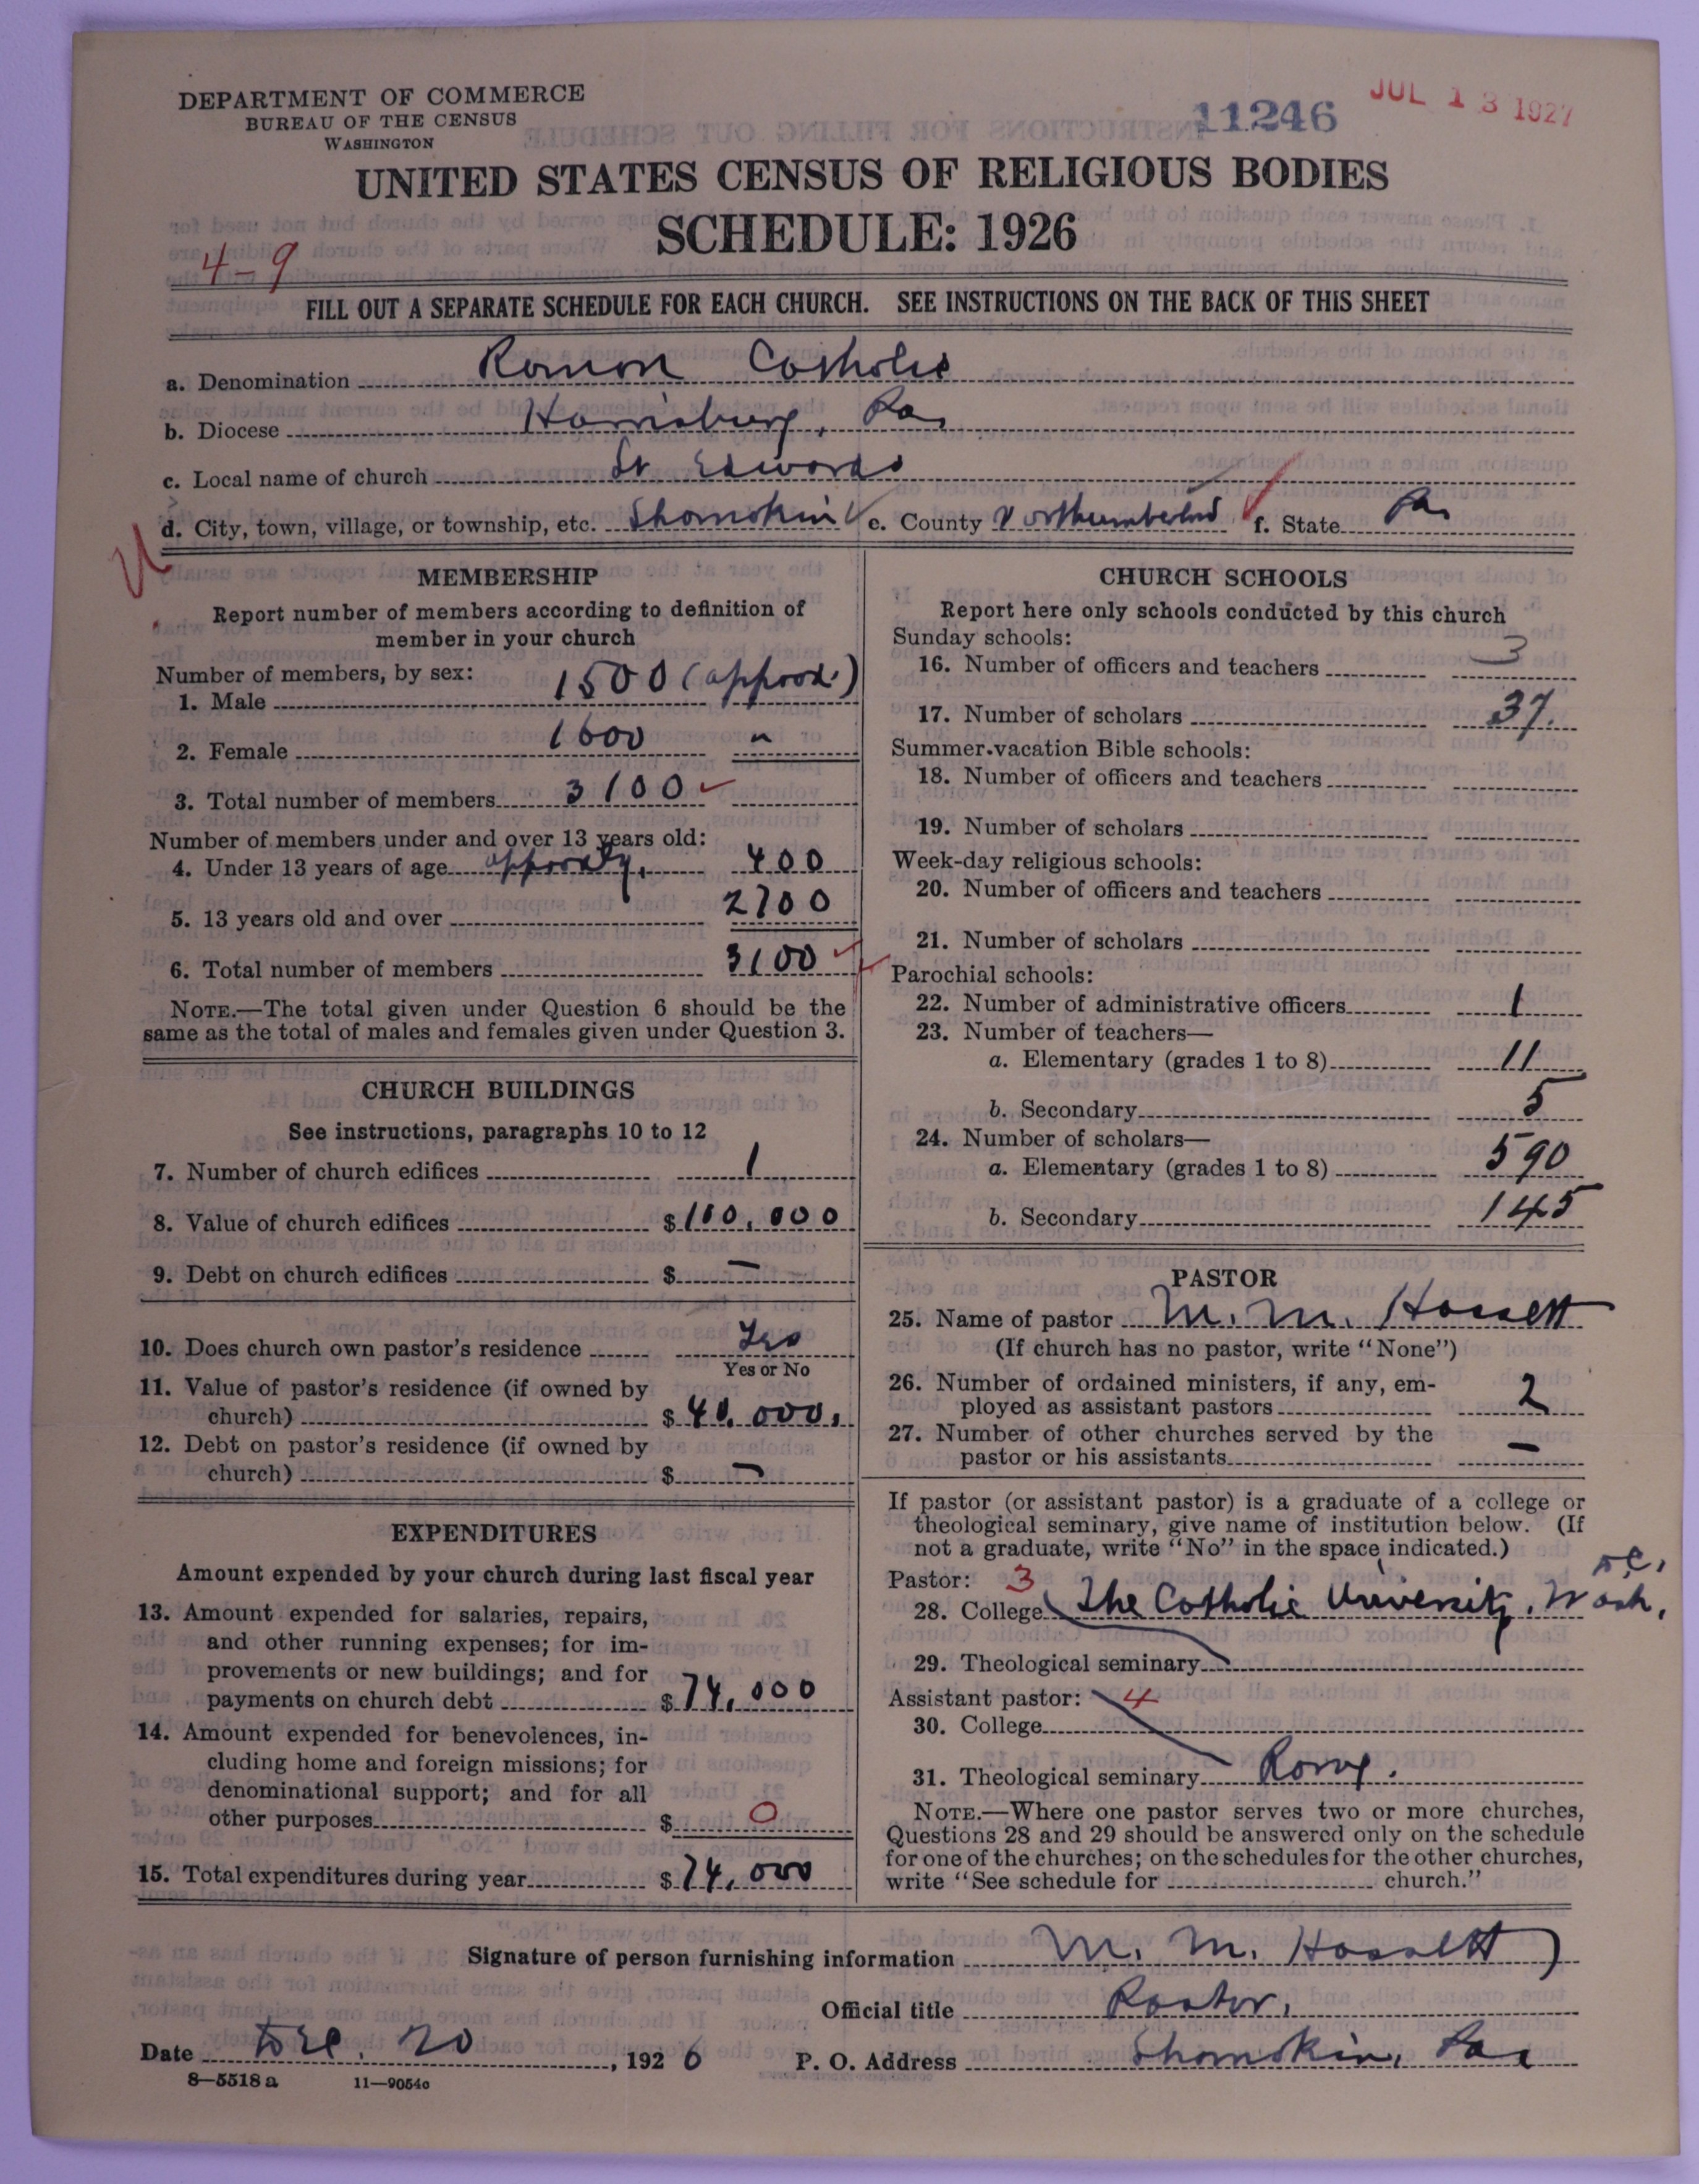 DEPARTMENT OF COMMERCE
BUREAU OF THE CENSUS
WASHINGTON
11246
JUL 13 1927
UNITED STATES CENSUS OF RELIGIOUS BODIES
SCHEDULE: 1926
4-9
FILL OUT A SEPARATE SCHEDULE FOR EACH CHURCH. SEE INSTRUCTIONS ON THE BACK OF THIS SHEET
a. Denomination Roman Catholic
b. Diocese Harrisburg, Pa.
c. Local name of church St Edwards
d. City, town, village, or township, etc. Shamokin e. County Northumberland f. State Pa.
MEMBERSHIP
Report number of members according to definition of
member in your church
Number of members, by sex:
1. Male 1500 (approx.)
2. Female 1600 "
3. Total number of members 3100
Number of members under and over 13 years old:
4. Under 13 years of age 400
5. 13 years old and over 2700
6. Total number of members 3100
NOTE.—The total given under Question 6 should be the
same as the total of males and females given under Question 3.
CHURCH BUILDINGS
See instructions, paragraphs 10 to 12
7. Number of church edifices 1
8. Value of church edifices $100,000
9. Debt on church edifices $ —
10. Does church own pastor's residence Yes
Yes or No
11. Value of pastor's residence (if owned by
church) $40,000.
12. Debt on pastor's residence (if owned by
church) $ —
EXPENDITURES
Amount expended by your church during last fiscal year
13. Amount expended for salaries, repairs,
and other running expenses; for im-
provements or new buildings; and for
payments on church debt $74,000
14. Amount expended for benevolences, in-
cluding home and foreign missions; for
denominational support; and for all
other purposes $ 0
15. Total expenditures during year $74,000
CHURCH SCHOOLS
Report here only schools conducted by this church
Sunday schools:
16. Number of officers and teachers 3
17. Number of scholars 37.
Summer vacation Bible schools:
18. Number of officers and teachers
19. Number of scholars
Week-day religious schools:
20. Number of officers and teachers
21. Number of scholars
Parochial schools:
22. Number of administrative officers 1
23. Number of teachers—
a. Elementary (grades 1 to 8) 11
b. Secondary 5
24. Number of scholars—
a. Elementary (grades 1 to 8) 590
b. Secondary 145
PASTOR
25. Name of pastor M. M. Hassett
(If church has no pastor, write "None")
26. Number of ordained ministers, if any, em-
ployed as assistant pastors 2
27. Number of other churches served by the
pastor or his assistants —
If pastor (or assistant pastor) is a graduate of a college or
theological seminary, give name of institution below. (If
not a graduate, write "No" in the space indicated.)
Pastor: 3
28. College The Catholic University, Wash, D.C.
29. Theological seminary
Assistant pastor: 4
30. College
31. Theological seminary Rome.
NOTE.—Where one pastor serves two or more churches,
Questions 28 and 29 should be answered only on the schedule
for one of the churches; on the schedules for the other churches,
write "See schedule for church."
Signature of person furnishing information M. M. Hassett
Official title Pastor.
Date Dec. 20, 1926 P. O. Address Shamokin, Pa.
8—5518 a 11—9054c